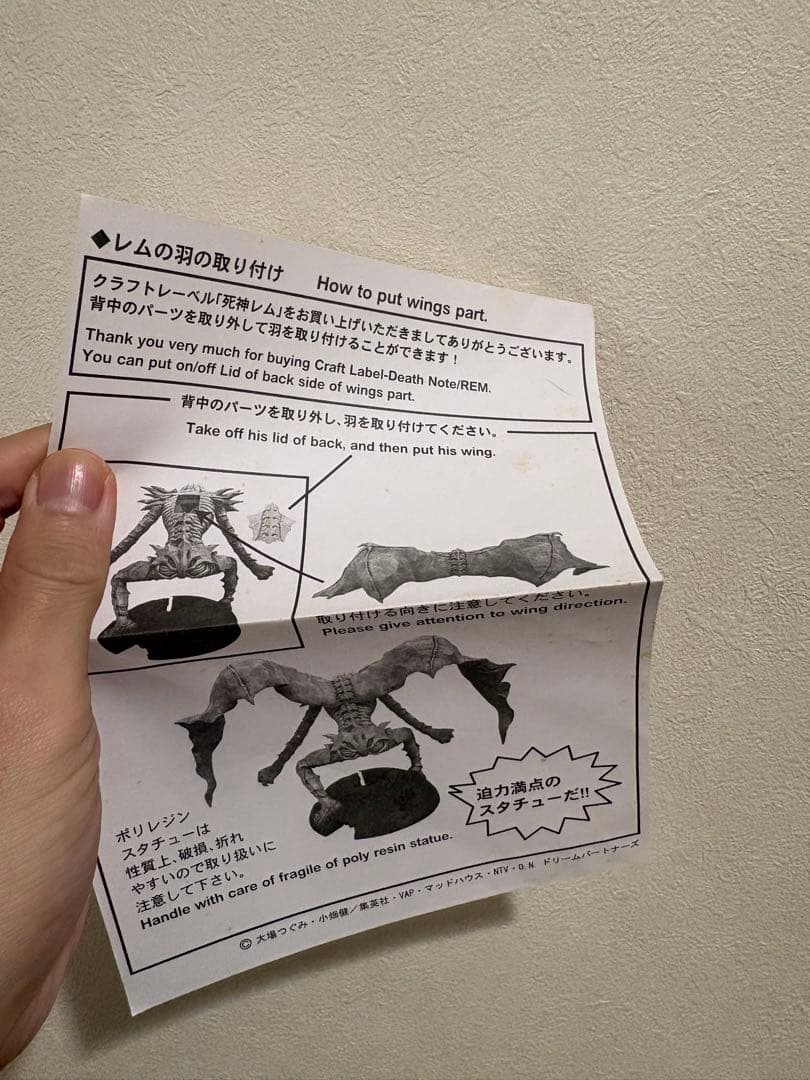 ◆レムの羽の取り付け How to put wings part.
クラフトレーベル「死神レム」をお買い上げいただきましてありがとうございます。
背中のパーツを取り外して羽を取り付けることができます！
Thank you very much for buying Craft Label-Death Note/REM.
You can put on/off Lid of back side of wings part.
背中のパーツを取り外し、羽を取り付けてください。
Take off his lid of back, and then put his wing.
取り付ける向きに注意してください。
Please give attention to wing direction.
迫力満点の
スタチューだ!!
ポリレジン
スタチューは
性質上、破損、折れ
やすいので取り扱いに
注意して下さい。
Handle with care of fragile of poly resin statue.
© 大場つぐみ・小畑健／集英社・VAP・マッドハウス・NTV・D.N. ドリームパートナーズ